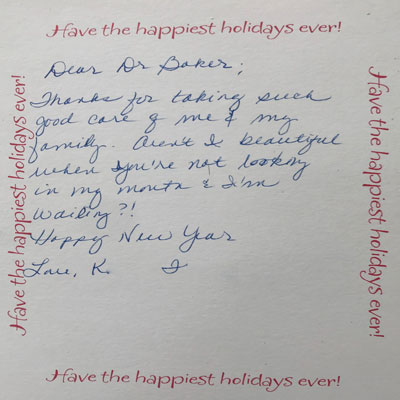 Have the happiest holidays ever!
Dear Dr Baker,
Thanks for taking such
good care of me & my
family. Aren't I beautiful
when you're not looking
in my mouth & I'm
wailing?!
Happy New Year
Love, K. I
Have the happiest holidays ever!
Have the happiest holidays ever!
Have the happiest holidays ever!